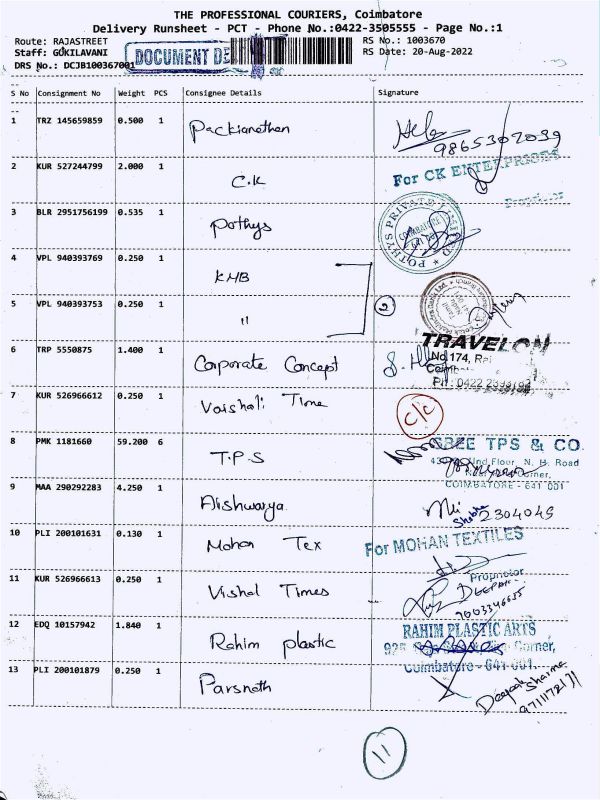 THE PROFESSIONAL COURIERS, Coimbatore
Delivery Runsheet - PCT - Phone No.:0422-3505555 - Page No.:1
Route: RAJASTREET RS No.: 1003670
Staff: GOKILAVANI DOCUMENT RS Date: 20-Aug-2022
DRS No.: DCJB100367001
S No Consignment No Weight PCS Consignee Details Signature
1 TRZ 145659859 0.500 1 Packianathan
9865302039
2 KUR 527244799 2.000 1 C.K For CK ENTERPRISES
Proprietor
3 BLR 2951756199 0.535 1 Pothys POTHYS PRIVATE COIMBATORE
4 VPL 940393769 0.250 1 KMB
5 VPL 940393753 0.250 1 " 2
TRAVELON
6 TRP 5550875 1.400 1 Corporate Concept No.174,
Ph: 0422
7 KUR 526966612 0.250 1 Vaishali Time C/C
8 PMK 1181660 59.200 6 T.P.S SREE TPS & CO
Floor, N. H. Road
Corner,
COIMBATORE - 641 001
9 MAA 290292283 4.250 1 Aishwarya 2304049
10 PLI 200101631 0.130 1 Mohan Tex For MOHAN TEXTILES
Proprietor
11 KUR 526966613 0.250 1 Vishal Times DEEPAK
12 EDQ 10157942 1.840 1 Rahim plastic RAHIM PLASTIC ARTS
Corner,
Coimbatore - 641 001.
13 PLI 200101879 0.250 1 Parsnath Deepak Sharma
11